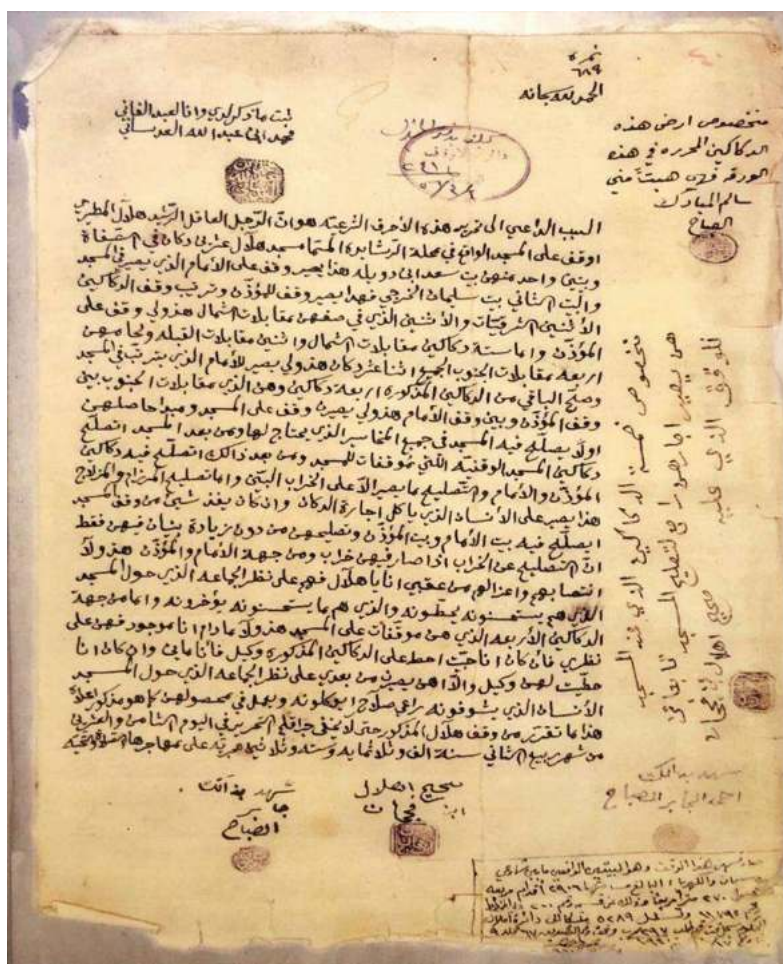 نمره
٦٨٩
الحمد لله سبحانه
ثبت ما ذكر لدي وانا العبد الفاني
محمد ابن عبد الله العدساني
منخصوص ارض هذه
الدكاكين المحرره في هذه
الورقه فهي هبتاً مني
سالم المبارك
الصباح
السبب الداعي الى تحرير هذه الأحرف الشرعيه هو ان الرجل العاقل الرشيد هلال المطيري
اوقف على المسجد الواقع في محلة الرشايده المسما مسجد هلال عشرين دكان في
وبيتين واحد منهن بيت سعد ابن دويله هذا يصير وقف على الأمام الذي يصير في المسجد
والبيت الثاني بيت سليمان الخرجي فهذا يصير وقف للمؤذن وترتيب وقف الدكاكين
الأثنين الشرقيات والأثنين الذي في صفهن مقابلات الشمال هذولي وقف على
المؤذن واما ستة دكاكين مقابلات الشمال واثنين مقابلات القبله ولحامهن
اربعه مقابلات الجنوب الجميع اثنا عشر دكان هذولي يصير للأمام الذي يترتب في المسجد
وصح الباقي من الدكاكين المذكوره اربعة دكاكين وهن الذي مقابلات الجنوب بين
وقف المؤذن وبين وقف الأمام هذولي يصيرن وقف على المسجد ومبدا حاصلهن
اولاً يصلح فيه المسجد في جميع المخاسير الذي يحتاج لها ومن بعد المسجد اتصلح
دكاكين المسجد الوقفيه اللتي موقفات للمسجد ومن بعد ذالك اتصلح فيه دكاكين
المؤذن والأمام والتصليح ما يصير الا على الخراب البين واما تصليح المرزام والمزلاج
هذا يصير على الأنسان الذي ياكل اجارة الدكان وان كان يفذ شيئ من وقف المسجد
ايصلح فيه بيت الأمام وبيت المؤذن وتصليحهن من دون زيادة بنيان فيهن فقط
ان التصليح عن الخراب اذا صار فيهن خراب ومن جهة الأمام والمؤذن هذولا
انتصابهم واعزالهم من عقبي انا يا هلال فهم على نظر الجماعه الذي حول المسجد
الذي هم يستحسنونه يحطونه والذي هم ما يستحسنونه يؤخرونه واما من جهة
الدكاكين الأربعه الذي هن موقفات على المسجد هذولا ما دام انا موجود فهن على
نظري فأن كان انا حبيت احط على الدكاكين المذكوره وكيل فأنا مابي وان كان انا
حطيت لهن وكيل والا هن يصيرن من بعدي على نظر الجماعه الذي حول المسجد
الأنسان الذي يشوفونه راعي صلاح ايوكلونه ويعمل في محصولهن كما هو مذكور اعلاً
هذا ما تقرر من وقف هلال المذكور حتى لا يخفى جرا قلم التحرير في اليوم الثامن والعشرين
من شهر ربيع الثاني سنة الف وثلاثمايه وسته وثلاثين هجريه على مهاجرها
منخصوص خمسة الدكاكين الذي عند المسجد
هن يصير اجارهن
للوقف الذي عليه
صحيح هلال ابن فجحان
صحيح هلال
ابن فجحان
شهد بذالك
جابر
الصباح
شهد بذالك
احمد الجابر الصباح